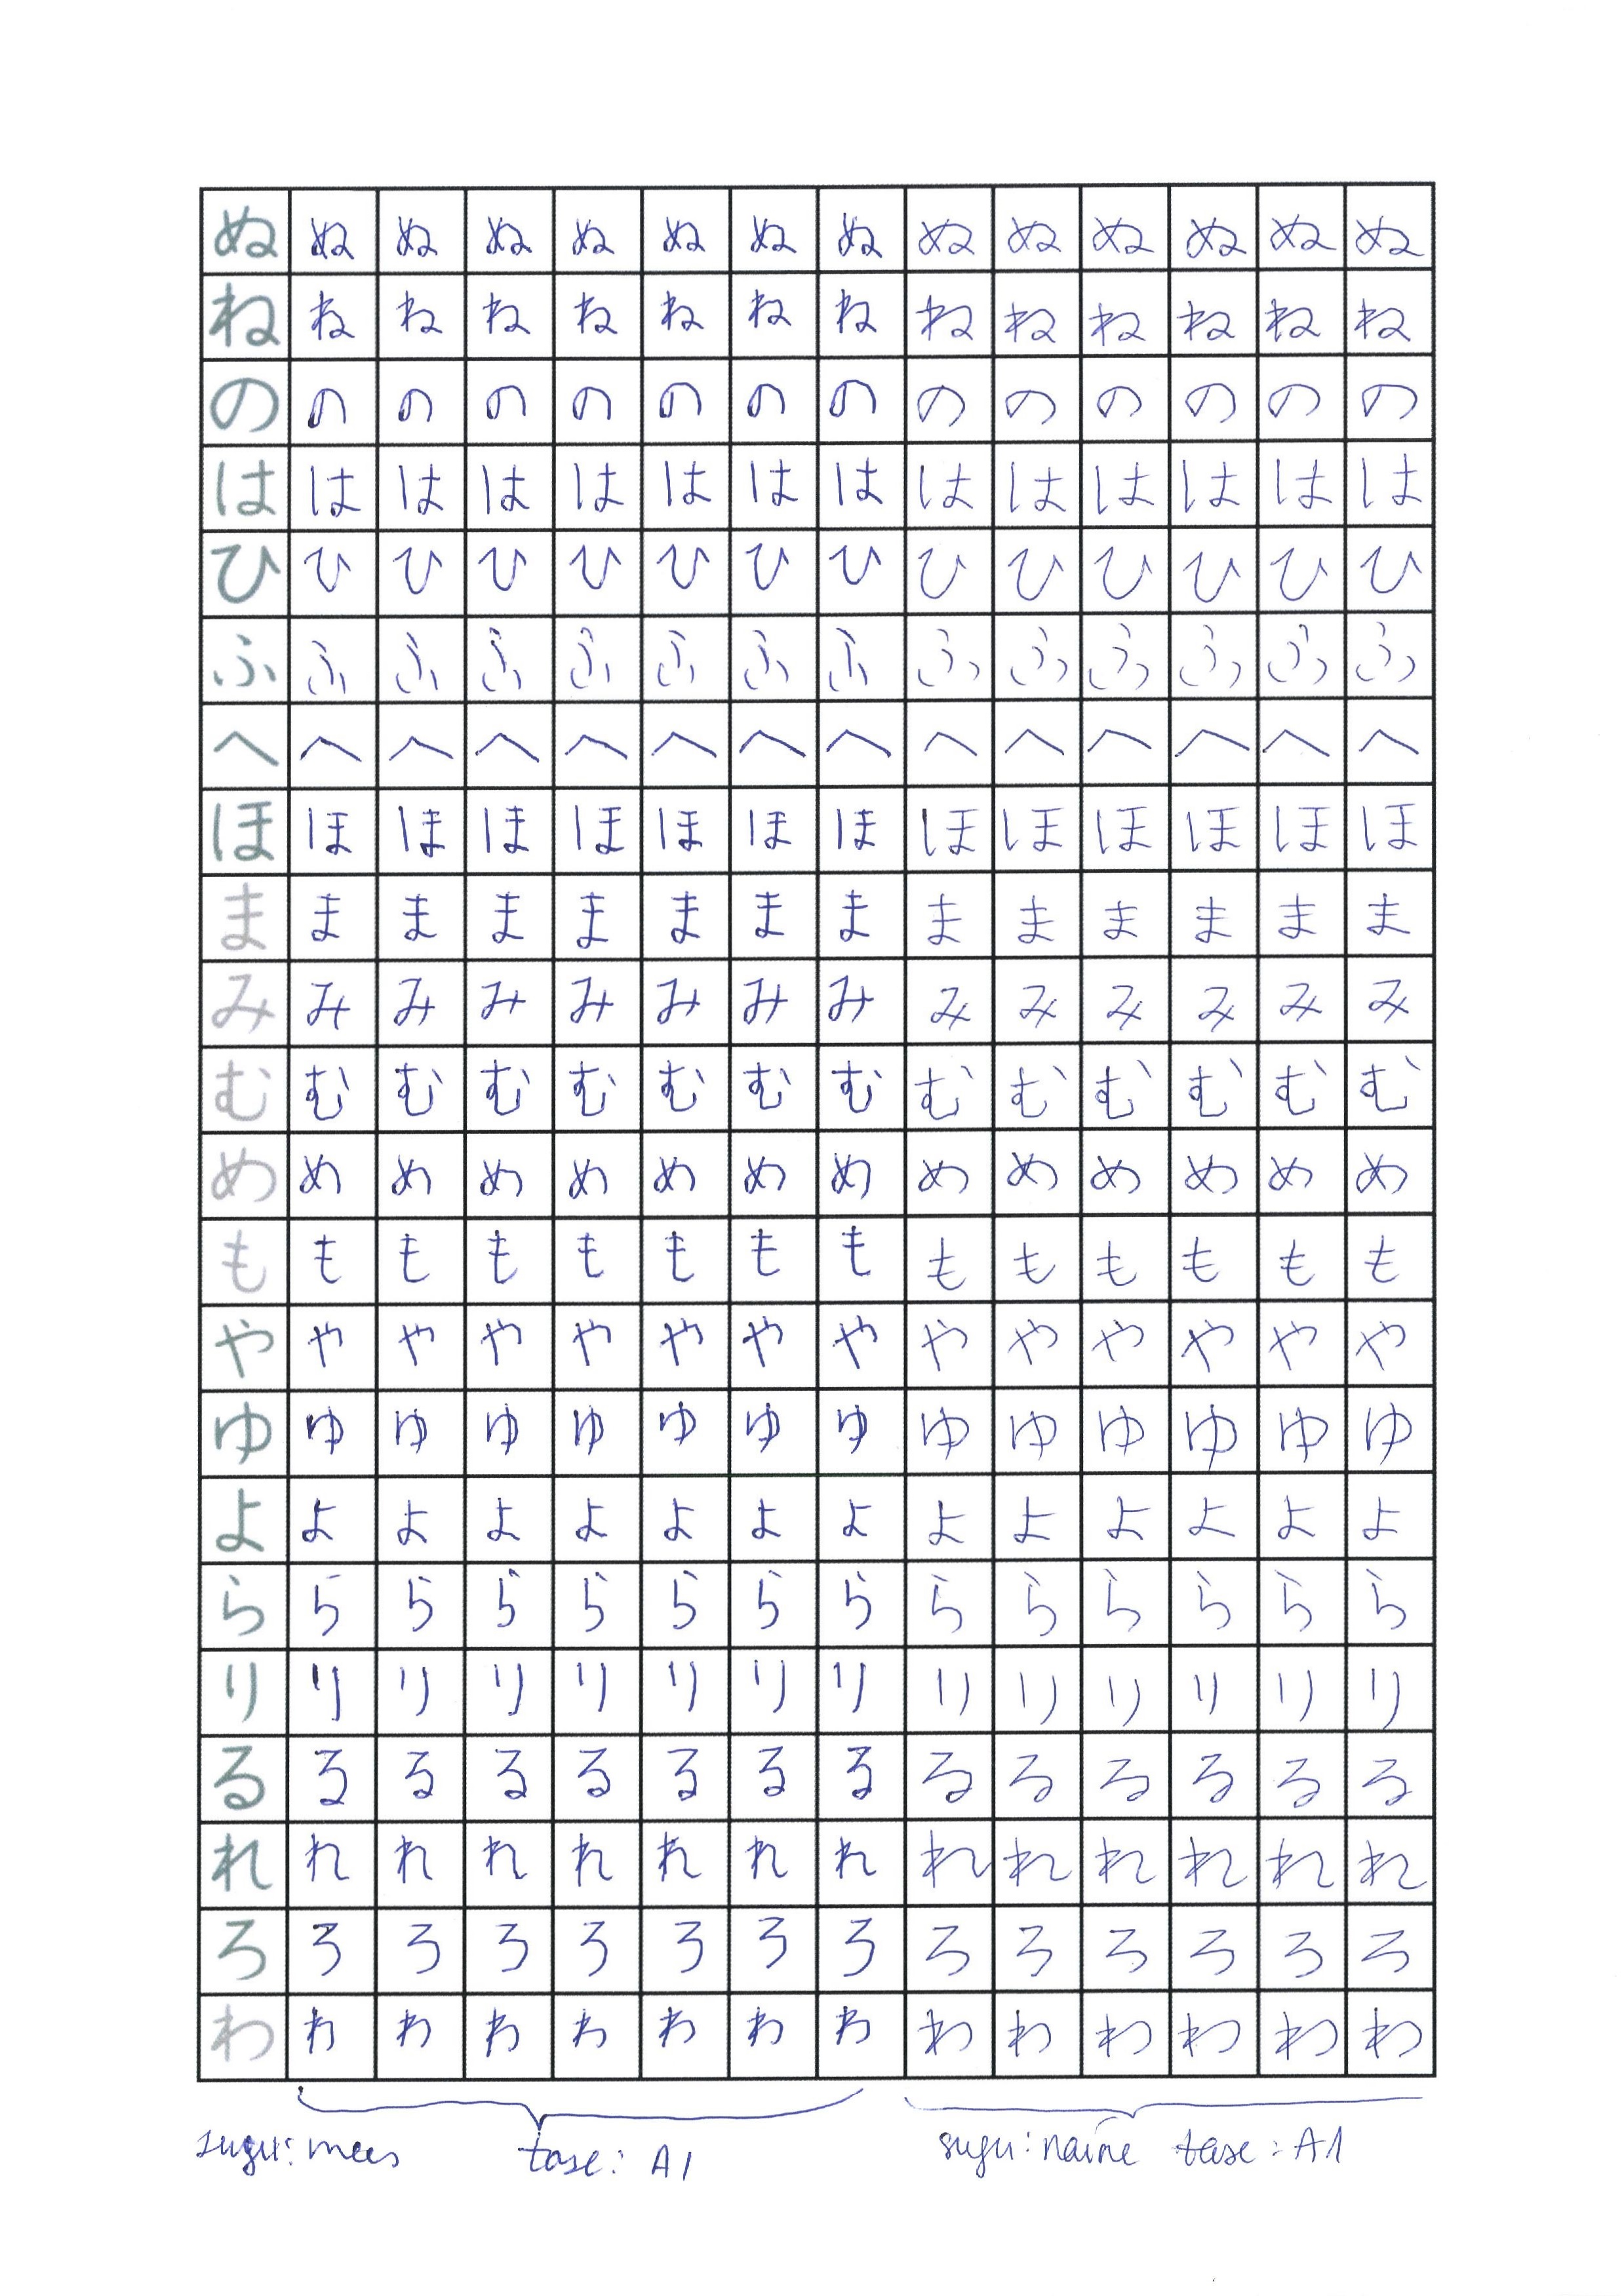 ぬ ぬ ぬ ぬ ぬ ぬ ぬ ぬ ぬ ぬ ぬ ぬ ぬ ぬ
ね ね ね ね ね ね ね ね ね ね ね ね ね ね
の の の の の の の の の の の の の の
は は は は は は は は は は は は は は
ひ ひ ひ ひ ひ ひ ひ ひ ひ ひ ひ ひ ひ ひ
ふ ふ ふ ふ ふ ふ ふ ふ ふ ふ ふ ふ ふ ふ
へ へ へ へ へ へ へ へ へ へ へ へ へ へ
ほ ほ ほ ほ ほ ほ ほ ほ ほ ほ ほ ほ ほ ほ
ま ま ま ま ま ま ま ま ま ま ま ま ま ま
み み み み み み み み み み み み み み
む む む む む む む む む む む む む む
め め め め め め め め め め め め め め
も も も も も も も も も も も も も も
や や や や や や や や や や や や や や
ゆ ゆ ゆ ゆ ゆ ゆ ゆ ゆ ゆ ゆ ゆ ゆ ゆ ゆ
よ よ よ よ よ よ よ よ よ よ よ よ よ よ
ら ら ら ら ら ら ら ら ら ら ら ら ら ら
り り り り り り り り り り り り り り
る る る る る る る る る る る る る る
れ れ れ れ れ れ れ れ れ れ れ れ れ れ
ろ ろ ろ ろ ろ ろ ろ ろ ろ ろ ろ ろ ろ ろ
わ わ わ わ わ わ わ わ わ わ わ わ わ わ
sugu: mees tase: A1 sugu: naine tase: A1